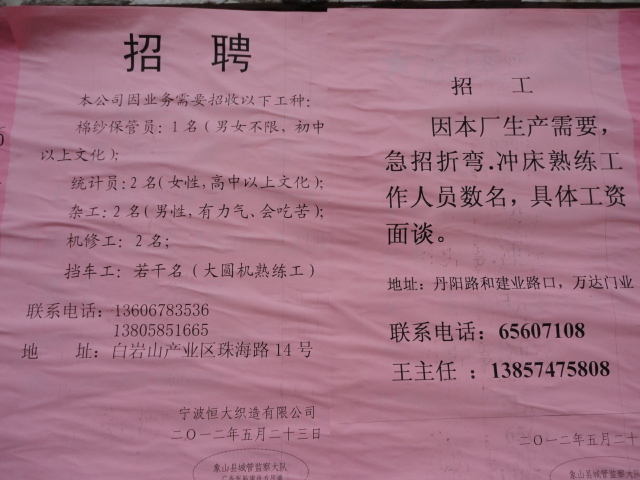 招 聘
本公司因业务需要招收以下工种：
棉纱保管员：1名（男女不限，初中
以上文化）；
统计员：2名（女性，高中以上文化）；
杂工：2名（男性，有力气、会吃苦）；
机修工：2名；
挡车工：若干名（大圆机熟练工）
联系电话：13606783536
13805851665
地 址：白岩山产业区珠海路14号
宁波恒大织造有限公司
二〇一二年五月二十三日
象山县城管监察大队
招 工
因本厂生产需要，
急招折弯.冲床熟练工
作人员数名，具体工资
面谈。
地址：丹阳路和建业路口，万达门业
联系电话：65607108
王主任：13857475808
二〇一二年五月二十
象山县城管监察大队